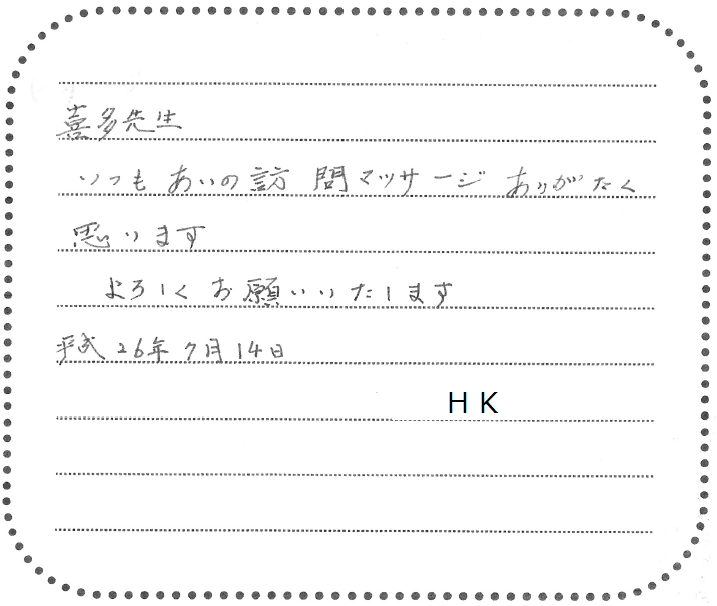 喜多先生
いつも あいの訪問マッサージ ありがたく
思います
よろしく お願いいたします
平成26年7月14日
HK